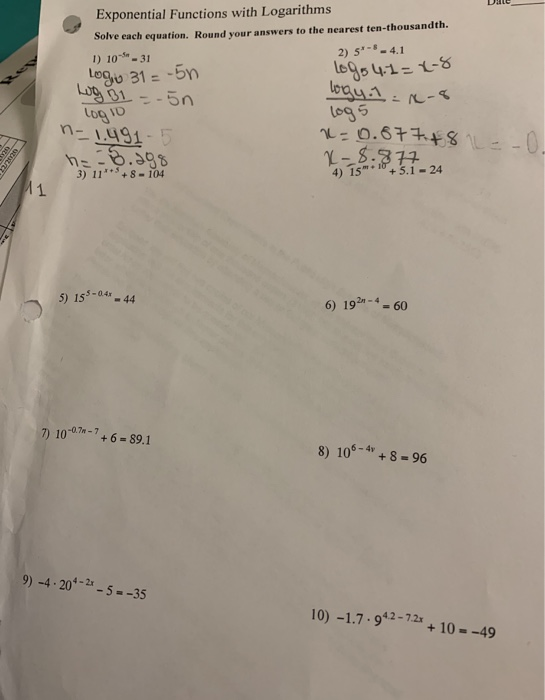 Exponential Functions with Logarithms
Solve each equation. Round your answers to the nearest ten-thousandth.
1) 10^(-5n) = 31
log₁₀ 31 = -5n
log 31 / log 10 = -5n
n = 1.491 - 5
n = -0.298
2) 5^(x-8) = 4.1
log₅ 4.1 = x-8
log 4.1 / log 5 = x-8
x = 0.877 + 8
x = 8.877
3) 11^(x+5) + 8 = 104
11
4) 15^(m+10) + 5.1 = 24
5) 15^(5-0.4x) = 44
6) 19^(2n-4) = 60
7) 10^(-0.7n-7) + 6 = 89.1
8) 10^(6-4v) + 8 = 96
9) -4 · 20^(4-2x) - 5 = -35
10) -1.7 · 9^(4.2-7.2x) + 10 = -49